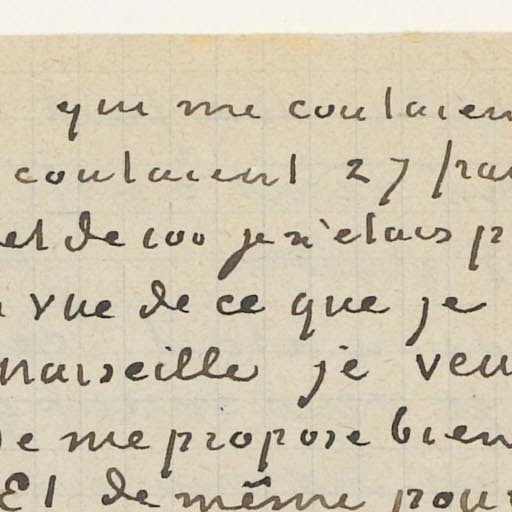 qui me coutaien
coutaient 27 fran
et de 100 je n'etais p
vue de ce que je
marseille je veu
Je me propose bien
Et de même pour